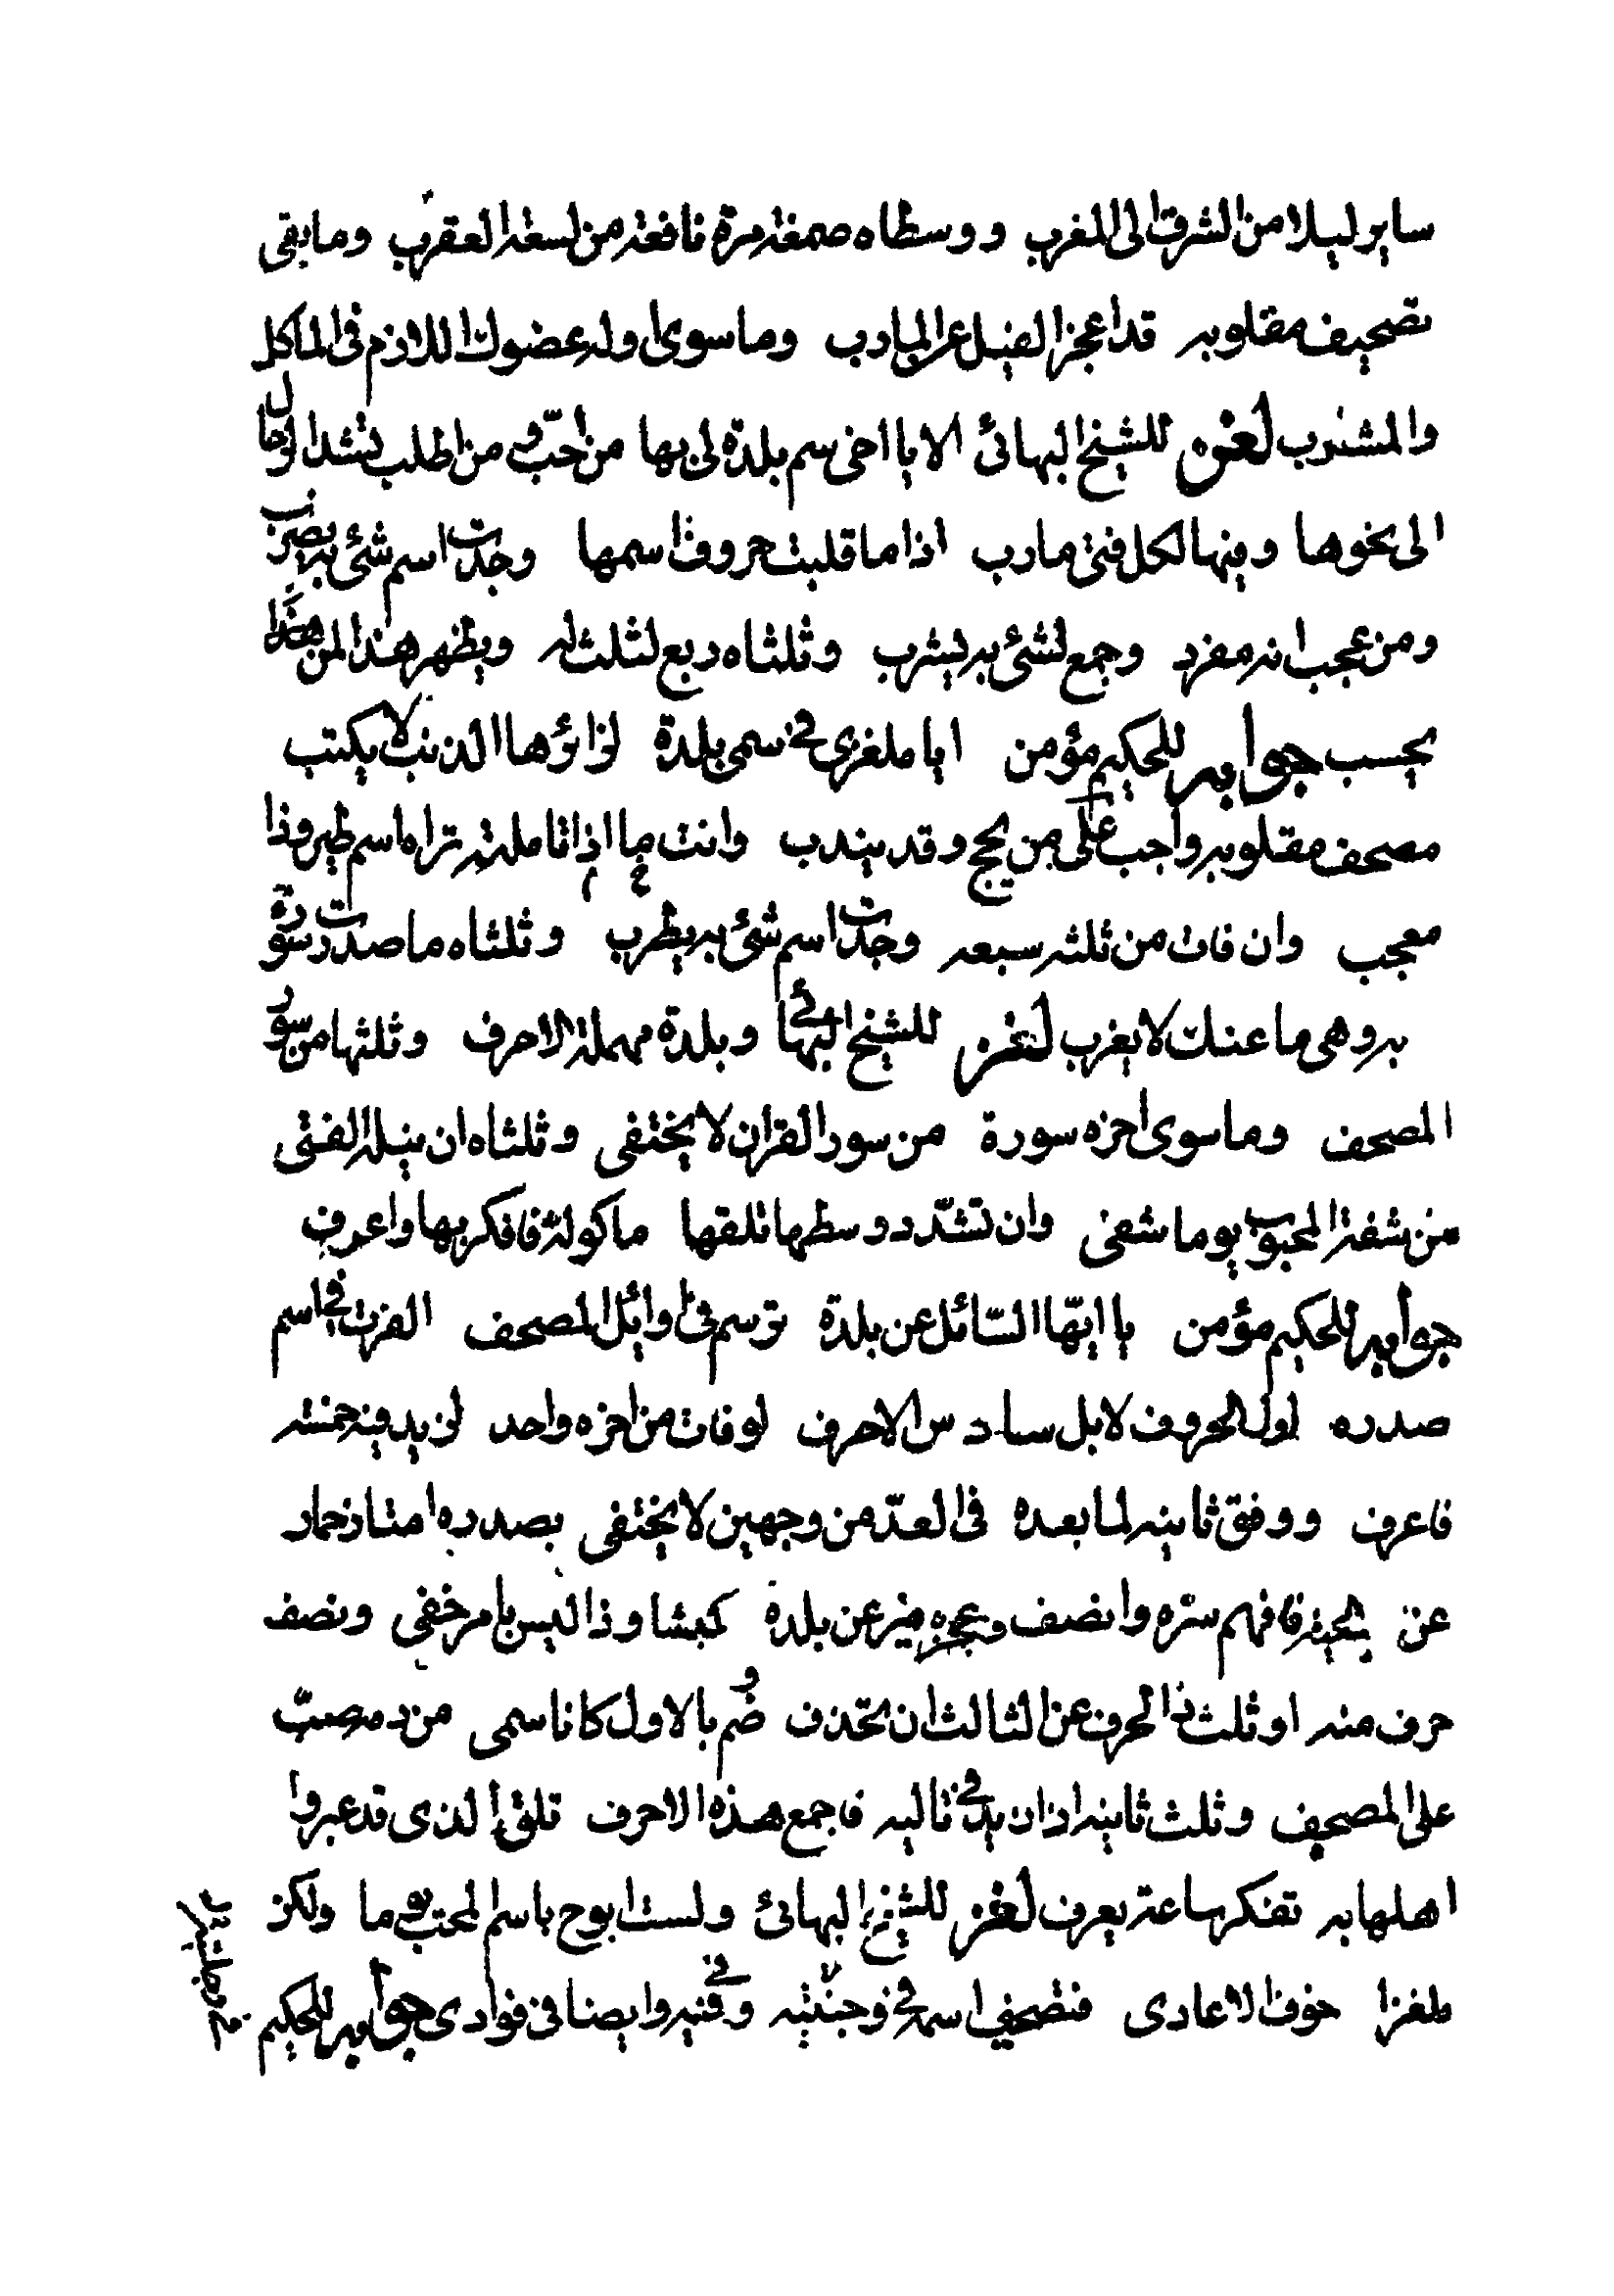 ساير ليلا من الشرق الى المغرب ووسطاه صمغة مرة نافعة من لسعة العقرب وما بقى
تصحيف مقلوبه قد اعجز الفيل عن المأرب وما سوى اوله عضوك اللازم فى المأكل
والمشرب لغز للشيخ البهائى الا يا اخى سم بلدة لى بها من احب ومن اطلب تشد الرحال
الى نحوها وفيها لكل فتى مارب اذا ما قلبت حروف اسمها وجدت اسم شئ به يضرب
ومن عجب انه مفرد وجمع لشئ به يشرب وثلثاه ربع لثلث له ويظهر هذا لمن
يحسب جوابه للحكيم مؤمن ايا ملغزى فى سمى بلدة لزائرها الذنب لا يكتب
مصحف مقلوبه واجب على من يحج وقد يندب وانت اذا تاملته تراه اسم طير وذا
معجب وان فات من ثلثه سبعه وجدت اسم شئ به يطرب وثلثاه ما صدرت سورة
به وهى ما عنك لا يغرب لغز للشيخ البهائى وبلدة مهملة الاحرف وثلثها من سور
المصحف وما سوى اخره سورة من سور القران لا يختفى وثلثاه ان ينله الفتى
من شفة المحبوب يوما شفى وان تشدد وسطها تلقها ماكولة فافكر بها واعرف
جوابه للحكيم مؤمن يا ايها السائل عن بلدة ترسم فى اوايل المصحف الغزت فى اسم
صدره اول الحروف لا بل سادس الاحرف لو فات من اخره واحد لزيد فيه خمسه
فاعرف ووفق ثانيه لما بعده فى العد من وجهين لا يختفى بصدره امتاز حمار
عن فافهم سره وانصف وعجزه ميز عن بلدة كبشا وذا ليس بامر خفى ونصف
حرف منه او ثلث ذا الحرف عن الثالث ان تحذف ضم بالاول كانا سمى من دم صب
على المصحف وثلث ثانيه اذا زيد فى تاليه فاجمع هذه الاحرف تلق الذى قد عبروا
اهلها به تفكر ساعة يعرف لغز للشيخ البهائى ولست ابوح باسم المحبوب يوما ولكن
ملغزا خوف الاعادى فتصحيف اسمه فى وجنتيه وفى فيه وايضا فى فوادى جوابه للحكيم